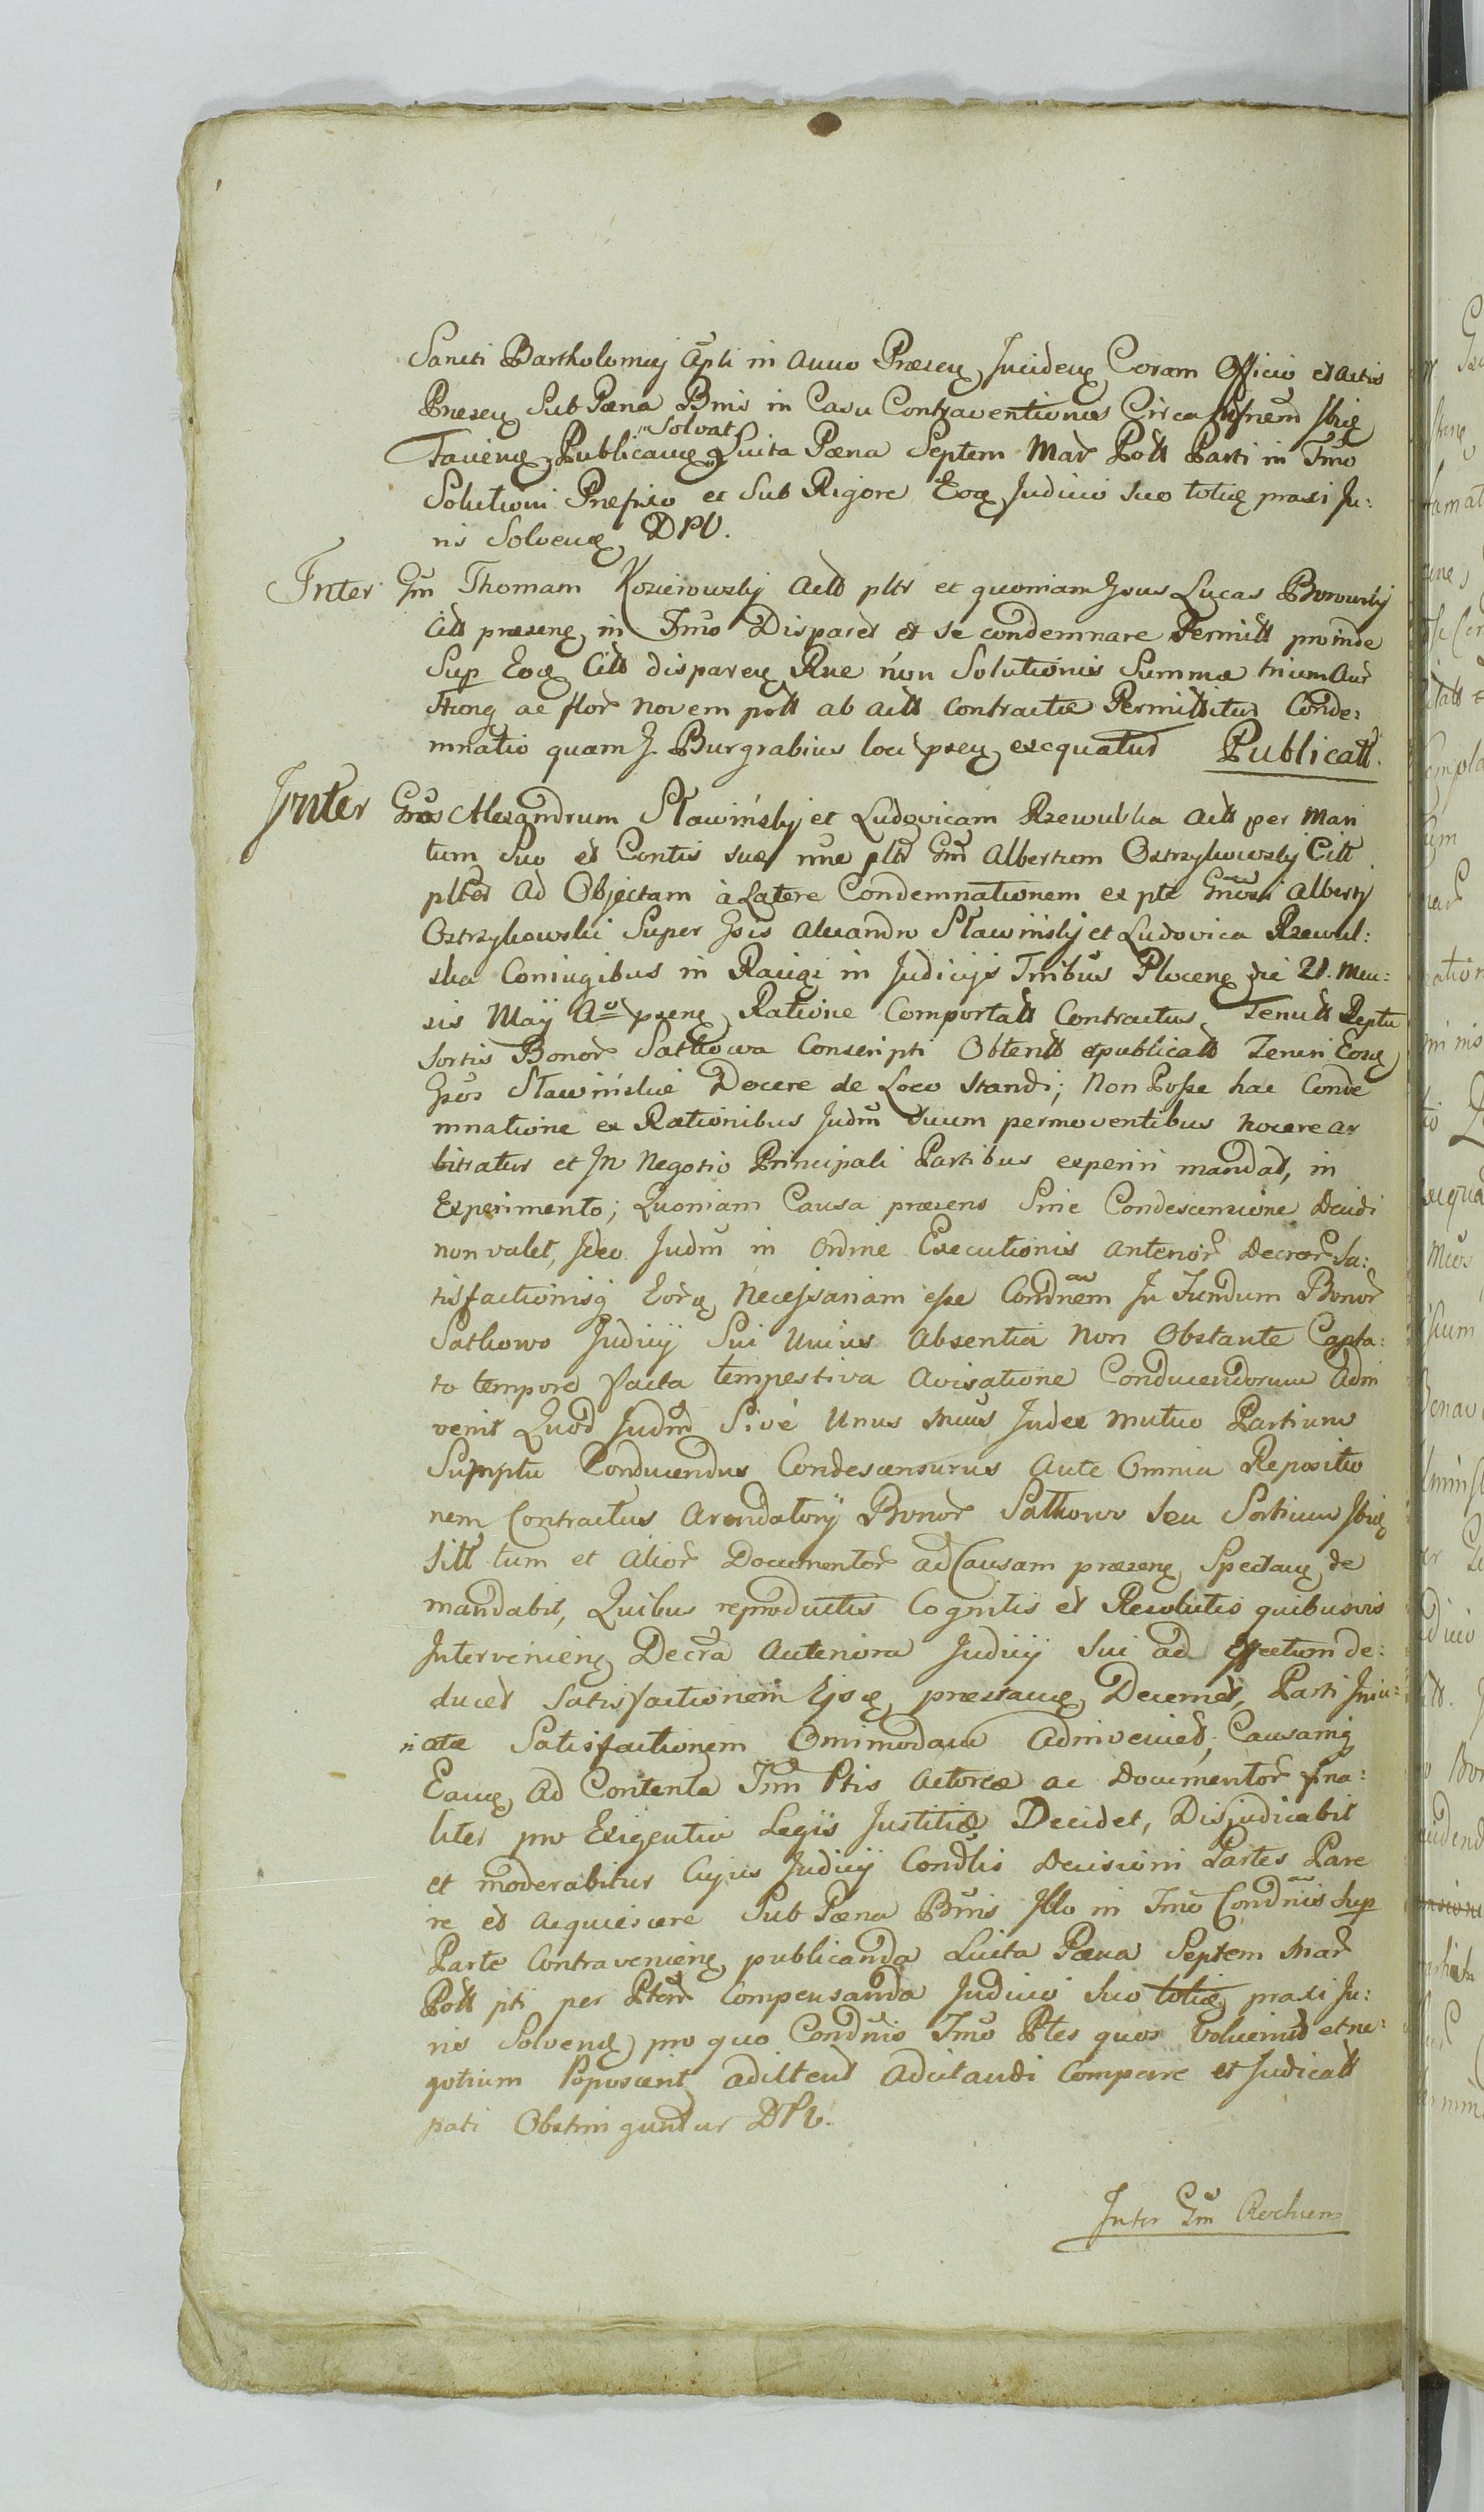 Sancti Bartholomej Apli in anno Præsenꝫ Incidenꝫ Coram Officio et actis
Præsenꝫ Sub Pæna Bnis in Casu Contraventionis Circa Ibiꝫ
"Solvat
Facienꝫ Publicanꝫ Luita Pæna Septem Mar Poll Parti in Tmo
Solutioni Præfixo et Sub Rigore Eoꝫ Judicio suo totieꝫ praxi Ju:
ris Solvenꝫ DPV.
Inter Gm Thomam Kozierowskij actt pltr et quoniam Gsus Lucas Borowskij
citt præsenꝫ in Tmo Disparet et se condemnare Permitt proinde
Sup Eoꝫ Citt disparenꝫ Rne non Solutionis Summæ trium Aur
Hung ac flor novem poll ab actt contractæ Permittitur Conde:
mnatio quam G. Burgrabius loci psenꝫ exequatur Publicatt.
Inter Gnos Alexandrum Sławińskij et Ludovicam Rzewulska actt per Mari
tum suo et Contis suæ nne pltr Gm Albertum Ostrzykowskij Citt
plter Ad Objectam à Latere Condemnationem ex pte Gnosi Alberti
Ostrzykowski Super Gsis Alexandro Sławińskij et Ludovica Rzewul:
ska Coniugibus in Raciąż in Judicijs Tribus Plocenꝫ die 21. Men:
sis Maÿ Ao psenꝫ Ratione Comportatt Contractus Tenutt Reptu
Sortis Bonor Satkowa Conscripti Obtentt et publicatt Teneri Eosꝫ
Gsos Sławińskie Docere de Loco Standi; Non Posse hac Conde
mnatione ex Rationibus Judm Suum permoventibus nocere ar
bitratur et In Negotio Principali Partibus experiri mandat, in
Experimento; Quoniam Causa præsens Sine Condescensione Decidi
non valet, Ideo Judm in Ordine Executionis anterior Decretor Sa:
tisfactionisꝗ Eorꝫ Necessariam esse Condnem In Fundum Bonor
Satkowo Judicij Sui Unius Absentia Non Obstante Capta:
to tempore facta tempestiva Avisatione Conducendorum Adin
venit Quod Judm Sivè Unus Suus Judex mutuo Partium
Sumptu Conducendus Condescensurus Ante Omnia Repositio
nem Contractus Arendatorÿ Bonor Satkowo Seu Sortium Ibiꝫ
Sitt tum et Alior Documentor ad Causam præsenꝫ Spectanꝫ de
mandabit, Quibus reproductis Cognitis et Resolutis quibusvis
Intervenienꝫ Decra Anteriora Judicij Sui ad Effectum de:
ducet Satisfactionem Ejsꝫ præstanꝫ Decernet, Parti Iniu:
riatæ Satisfactionem Omimodam Adinveniet; Causamꝗ
Eamꝫ Ad Contenta Tm Ptis Actoreæ ac Documentor fina:
liter pro Exigentia Legis Justitiæ Decidet, Disjudicabit
et moderabitur Cujus Judicij Condlis Decisioni Partes Pare
re et acquiescere Sub Pæna Bnis Illo in Tmo Condnis Sup
Parte Contravenienꝫ publicanda Luita Pæna Septem Mar
Poll pti per Ptem Compensanda Judicio Suo totieꝫ praxi Ju:
ris Solvenꝫ pro quo Condnis Tmo Ptes quos Voluerint et ne:
gotium Poposcerit adittent Adcitandi Compare et Judicatt
pati Obstringuntur DPV.
Inter Gm Rochum